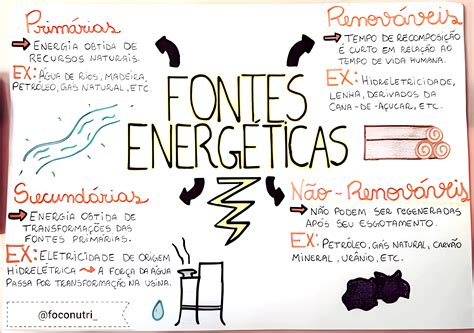 Primárias
ENERGIA OBTIDA DE
RECURSOS NATURAIS.
EX: ÁGUA DE RIOS, MADEIRA,
PETRÓLEO, GAS NATURAL, ETC.
Renováveis
TEMPO DE RECOMPOSIÇÃO
É CURTO EM RELAÇÃO AO
TEMPO DE VIDA HUMANA.
EX: HIDRELETRICIDADE,
LENHA, DERIVADOS DA
CANA-DE-AÇUCAR, ETC.
FONTES
ENERGÉTICAS
Secundárias
ENERGIA OBTIDA DE
TRANSFORMAÇÕES DAS
FONTES PRIMÁRIAS.
EX: ELETRICIDADE DE ORIGEM
HIDRELÉTRICA → A FORÇA DA ÁGUA
PASSA POR TRANSFORMAÇÃO NA USINA.
Não-Renováveis
NÃO PODEM SER REGENERADAS
APÓS SEU ESGOTAMENTO.
EX: PETRÓLEO, GÁS NATURAL, CARVÃO
MINERAL, URÂNIO, ETC.
@foconutri_